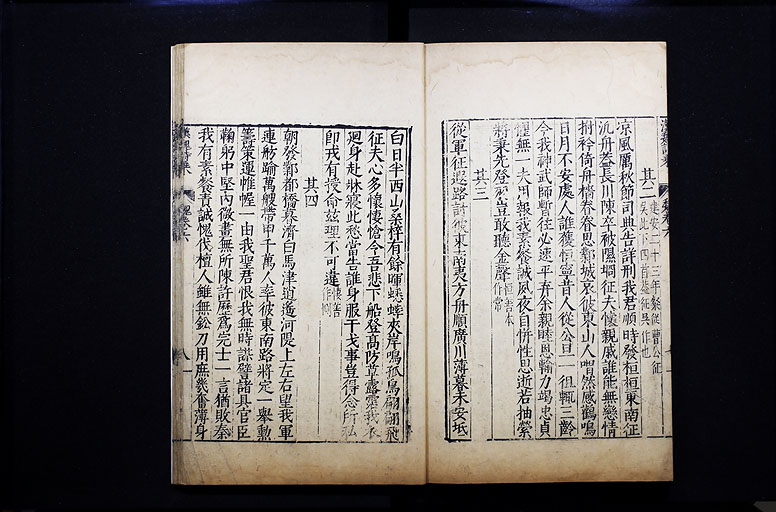 其二 建安二十三年粲從曹公征
吳此下四首並征吳作也
涼風厲秋節司典告詳刑我君順時發桓桓東南征
汎舟蓋長川陳卒被隰坰征夫懷親戚誰能無戀情
拊衿倚舟檣眷眷思鄴城哀彼東山人喟然感鸛鳴
日月不安處人誰獲恒寧昔人從公旦一徂輒三齡
今我神武師暫往必速平弃余親睦恩輸力竭忠貞
懼無一夫用報我素餐誠夙夜自恲性思逝若抽縈
將秉先登羽豈敢聽金聲 恒善本
作常
其三
從軍征遐路討彼東南夷方舟順廣川薄暮未安坻
白日半西山桑梓有餘暉蟋蟀夾岸鳴孤鳥翩翩飛
征夫心多懷悽愴令吾悲下船登高防草露霑我衣
廻身赴牀寢此愁當告誰身服干戈事豈得念所私
即戎有授命茲理不可違 悽善
作惻
其四
朝發鄴都橋暮濟白馬津逍遙河隄上左右望我軍
連舫踰萬艘帶甲千萬人率彼東南路將定一舉勲
籌策運帷幄一由我聖君恨我無時謀譬諸具官臣
鞠躬中堅內微畫無所陳許歷爲完士一言猶敗秦
我有素餐責誠愧伐檀人雖無鉛刀用庶幾奮薄身